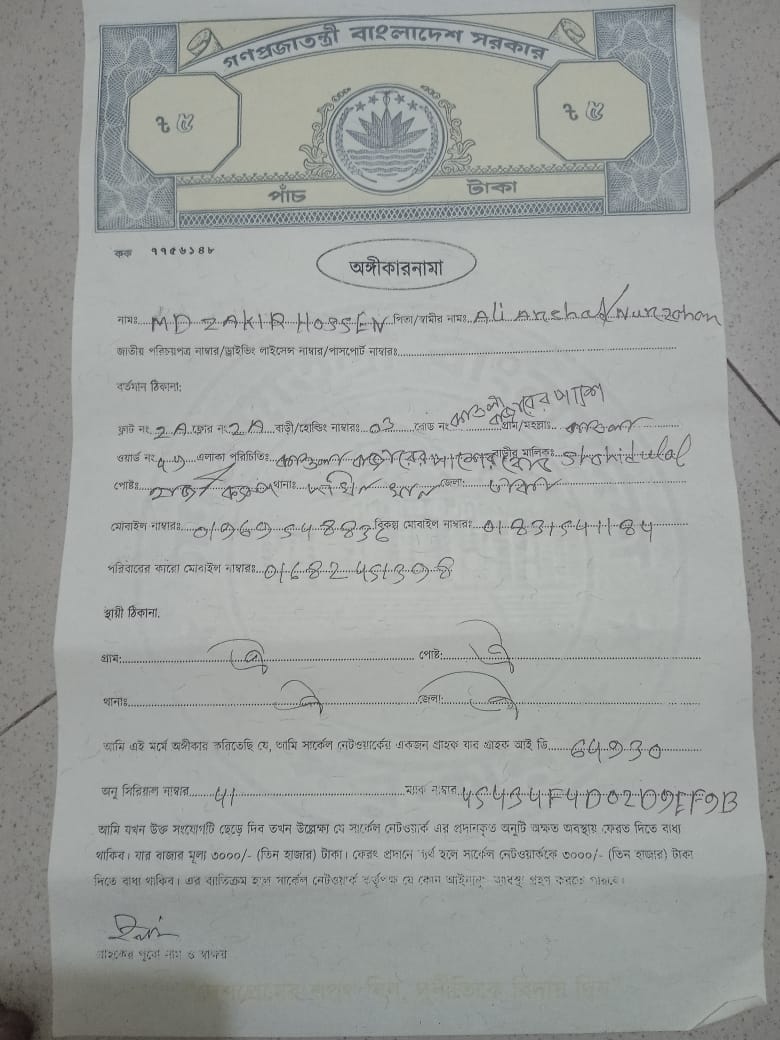 গণপ্রজাতন্ত্রী বাংলাদেশ সরকার
৳ ৫ ৳ ৫
পাঁচ টাকা
কক ৭৭৫৬১৪৮
অঙ্গীকারনামা
নামঃ MD ZAKIR HOSSEN পিতা/স্বামীর নামঃ Ali Arshad/Nurzohan
জাতীয় পরিচয়পত্র নাম্বার/ড্রাইভিং লাইসেন্স নাম্বার/পাসপোর্ট নাম্বারঃ
বর্তমান ঠিকানা:
বাজারের পাশে
ফ্লাট নং 2A ফ্লোর নং 2A বাড়ী/হোল্ডিং নাম্বারঃ 03 রোড নং কাওলা গ্রাম/মহল্লাঃ কাওলা
ওয়ার্ড নং এলাকা পরিচিতিঃ কাওলা বাজারের পাশের বাড়ীর মালিকঃ Shohidulal
পোষ্টঃ হাজী ক্যাম্প থানাঃ দক্ষিন খান জেলাঃ ঢাকা
মোবাইল নাম্বারঃ বিকল্প মোবাইল নাম্বারঃ 01831541184
পরিবারের কারো মোবাইল নাম্বারঃ 01682451398
স্থায়ী ঠিকানা.
গ্রাম: ঐ পোষ্ট: ঐ
থানাঃ ঐ জেলা: ঐ
আমি এই মর্মে অঙ্গীকার করিতেছি যে, আমি সার্কেল নেটওয়ার্কের একজন গ্রাহক যার গ্রাহক আই ডি 64930
অনু সিরিয়াল নাম্বার 41 ম্যাক নাম্বার
আমি যখন উক্ত সংযোগটি ছেড়ে দিব তখন উল্লেক্ষ্য যে সার্কেল নেটওয়ার্ক এর প্রদানকৃত অনুটি অক্ষত অবস্থায় ফেরত দিতে বাধ্য
থাকিব। যার বাজার মূল্য ৩০০০/- (তিন হাজার) টাকা। ফেরৎ প্রদানে ব্যর্থ হলে সার্কেল নেটওয়ার্ককে ৩০০০/- (তিন হাজার) টাকা
দিতে বাধ্য থাকিব। এর ব্যতিক্রম হলে সার্কেল নেটওয়ার্ক কর্তৃপক্ষ যে কোন আইনানুগ ব্যবস্থা গ্রহণ করতে পারবে।
গ্রাহকের পুরো নাম ও স্বাক্ষর
"দেশপ্রেমের শপথ নিন, দুর্নীতিকে বিদায় দিন"